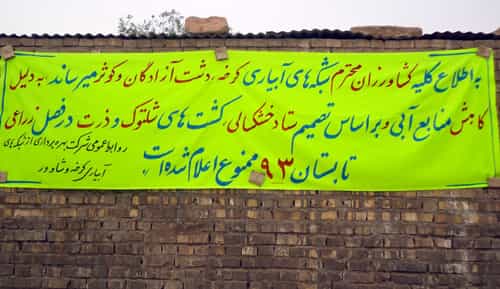 به اطلاع کلیه کشاورزان محترم شبکه های آبیاری کرخه، دشت آزادگان و کوثر میرساند، به دلیل
کاهش منابع آبی و بر اساس تصمیم ستاد خشکسالی، کشت های شلتوک و ذرت در فصل زراعی
تابستان ۹۳ ممنوع اعلام شده است
روابط عمومی شرکت بهره برداری از شبکه های
آبیاری کرخه و شاوور